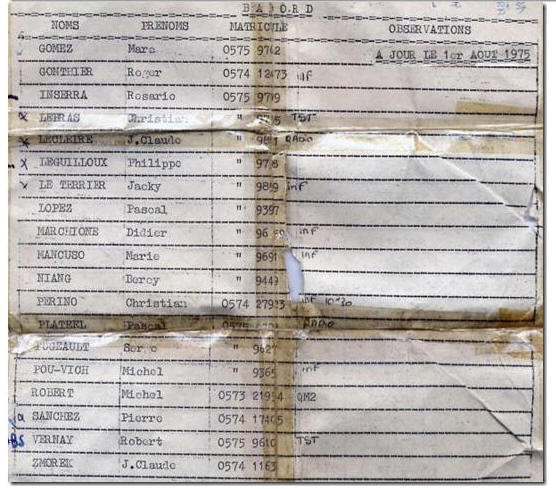 BABORD
NOMS PRENOMS MATRICULE OBSERVATIONS
GOMEZ Marc 0575 9742 A JOUR LE 1er AOUT 1975
GONTHIER Roger 0574 INF
INSERRA Rosario 0575
x LEBRAS Christian " TST
x LECLEIRE J.Claude " RADIO
x LEGUILLOUX Philippe "
x LE TERRIER Jacky " INF
LOPEZ Pascal " 9397
MARCHIONE Didier " INF
MANCUSO Marie " 9691 INF
NIANG Bercy " 9449
PERINO Christian 0574
PLATEEL Pascal RADIO
Serge " 9627
POU-VICH Michel " 9365 INF
ROBERT Michel 0573 QM2
SANCHEZ Pierre 0574
VERNAY Robert 0575 9610 TST
ZMOREK J.Claude 0574 1163